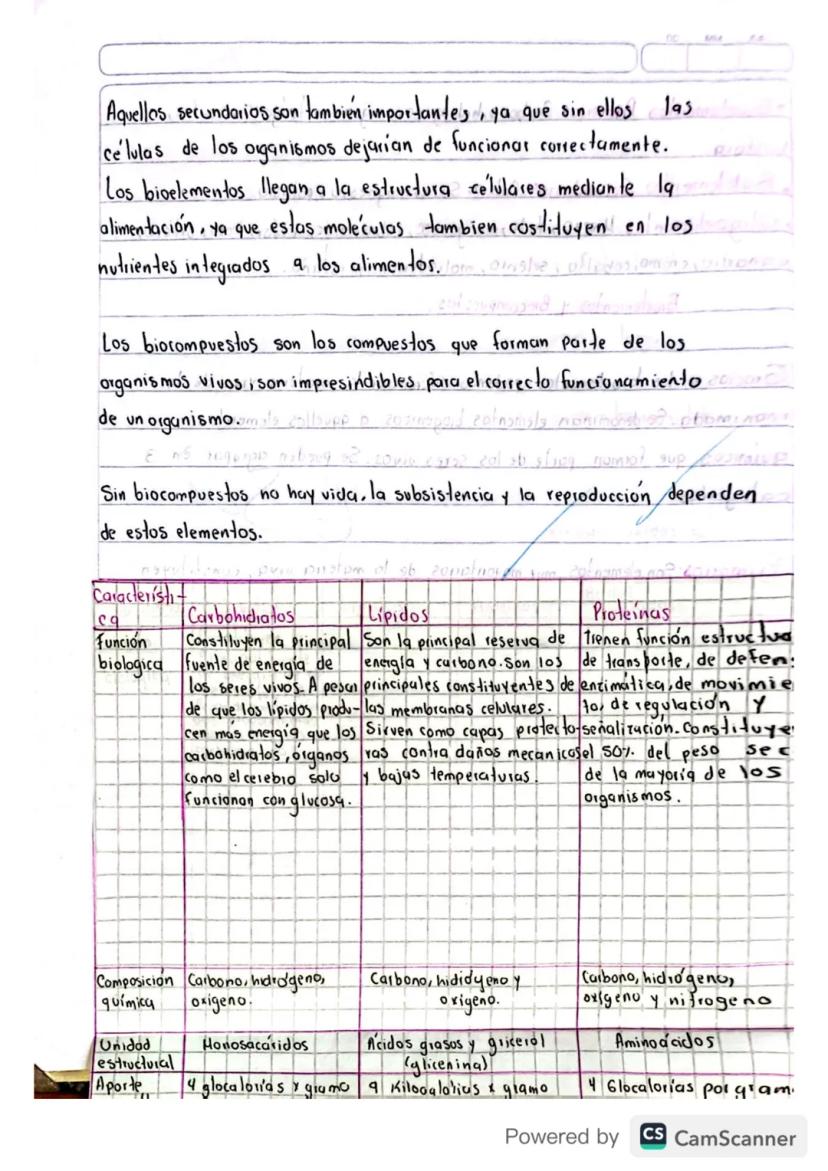 Aquellos secundarios son también importantes, ya que sin ellos las
células de los organismos dejarían de funcionar correctamente.
Los bioelementos llegan a la estructura células mediante la
alimentación, ya que estas moléculas tambien costituyen en los
nutrientes integrados a los alimentos.
Los biocompuestos son los compuestos que forman parte de los
organismos vivos; son impresindibles para el correcto funcionamiento
de un organismo.
Sin biocompuestos no hay vida, la subsistencia y la reproducción dependen
de estos elementos.
Característi-
ca
Carbohidratos
Lípidos
Proteínas
Función
biologica
Constituyen la principal
fuente de energía de
los seres vivos. A pesar
de que los lípidos produ-
cen más energía que los
carbohidratos, órganos
como el cerebro solo
funcionan con glucosa.
Son la principal reserva de
energía y carbono. Son los
principales constituyentes de
las membranas celulares.
Sirven como capas protecto-
ras contra daños mecanicos
y bajas temperaturas.
Tienen función estructura
de transporte, de defen
enzimática, de movimie
to, de regulación y
señalización. Constituye
el 50% del peso sec
de la mayoría de los
organismos.
Composición
química
Carbono, hidrógeno,
oxigeno.
Carbono, hidrógeno y
oxigeno.
Carbono, hidrógeno,
oxígeno y nitrogeno
Unidad
estructural
Monosacáridos
Ácidos grasos y glicerol
(glicerina)
Aminoácidos
Aporte
4 glocalorías x gramo
9 Kilocalorías x gramo
4 Glocalorías por gram
Powered by CS CamScanner